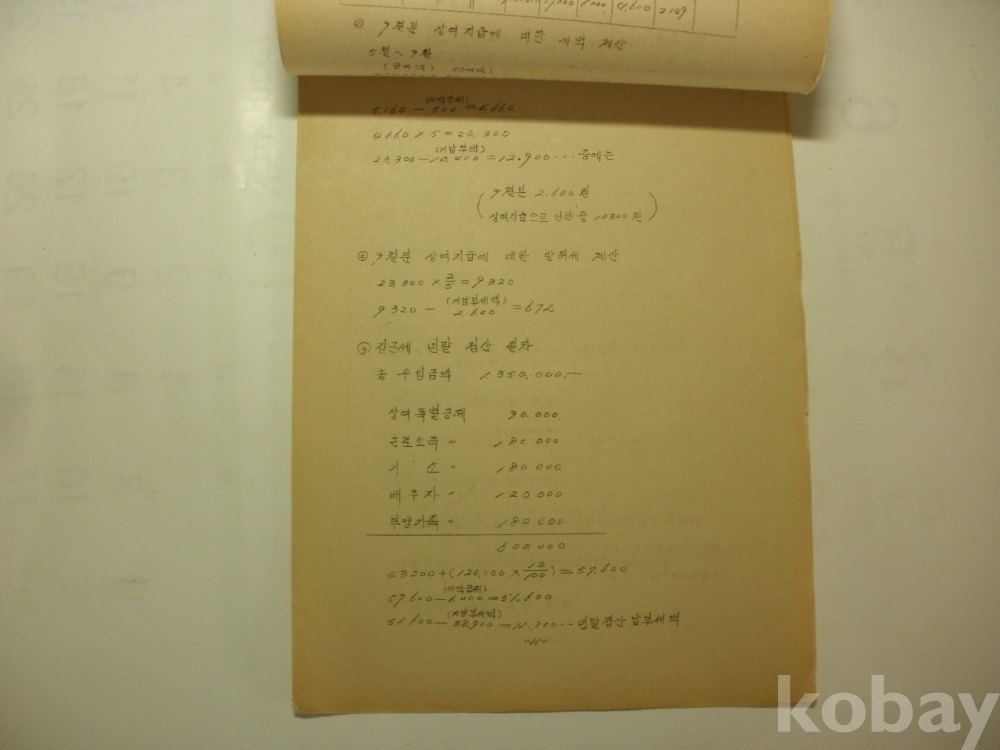 ② 9월분 상여지급에 대한 세액 계산
5월~9월
(세액공제)
5,160 - 500 = 4,660
4,660 × 5 = 23,300
(기납부액)
23,300 - 10,400 = 12,900 ··· 중에는
9월분 2,600원
상여지급으로 인한 증 10300원
② 9월분 상여지급에 대한 방위세 계산
23,300 × = 9320
(기납부세액)
9320 - = 672
③ 갑근세 년말 정산 절차
총 수입금액 1,350,000.-
상여특별공제 90,000
근로소득 〃 180,000
기 소 〃 180,000
배우자 〃 120,000
부양가족 〃 180,000
600,000
43200 + (120,000 × 12/100) = 57,600
(세액공제)
57,600 - 6000 = 51,600
(기납부세액)
51,600 - = ··· 년말정산 납부세액
-11-
kobay